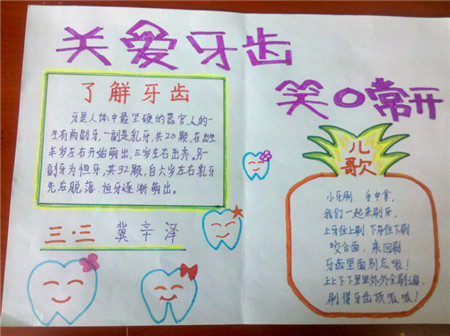 关爱牙齿
笑口常开
了解牙齿
牙是人体中最坚硬的器官,人的一
生有两副牙,一副是乳牙,共20颗,在出生
半岁左右开始萌出,三岁左右出齐。另一
副牙为恒牙,共32颗,自六岁左右乳牙
先后脱落,恒牙逐渐萌出。
三·三 冀辛泽
儿
歌
小牙刷 手中拿,
我们一起来刷牙,
上牙往上刷,下牙往下刷
咬合面,来回刷
牙齿里面别忘啦!
上上下下里里外外全刷遍,
刷得牙齿